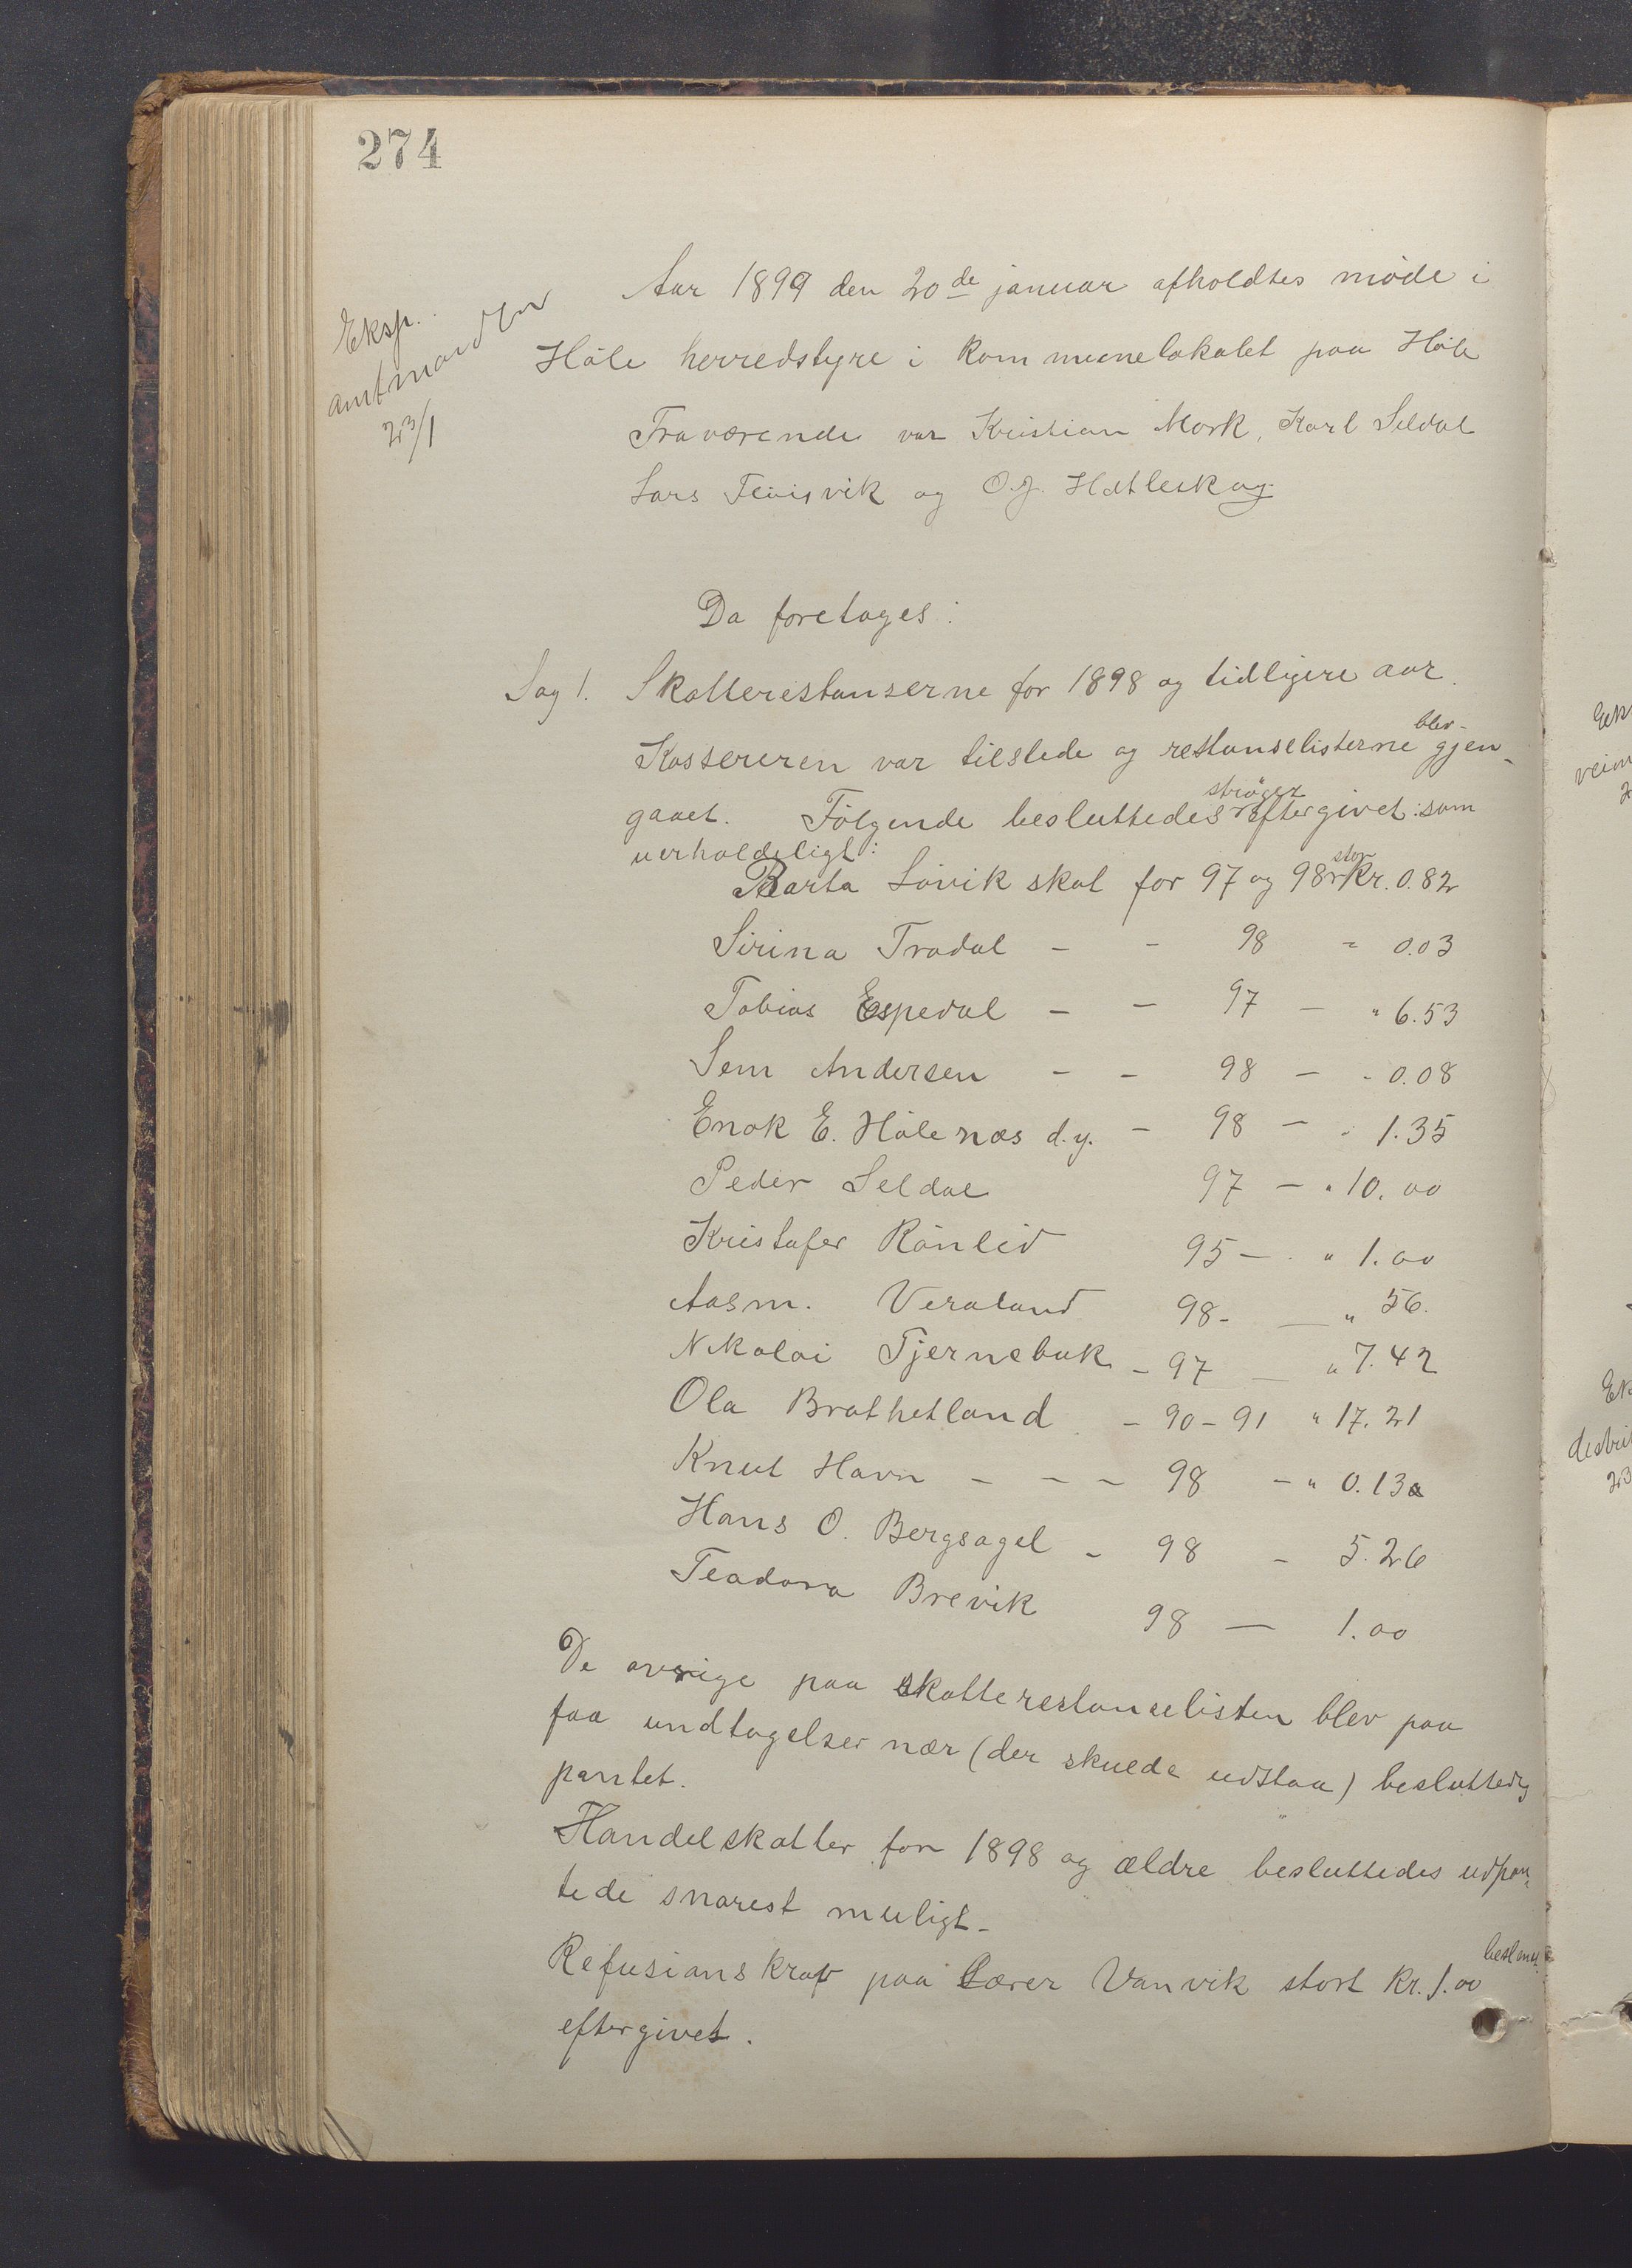 274
Eksp.
amtmanden
23/1
Aar 1899 den 20de januar afholdtes møde i
Høle herredstyre i kommunelokalet paa Høle
Fraværende var Kristian Mork, Karl Seldal
Lars Tunsvik og O. J. Hatleskog
Da foretoges:
Sag 1. Skatterestanserne for 1898 og tidligere aar.
Kassereren var tilstede og restanselisterne blev gjen-
gaaet. Følgende besluttedes strøget eftergivet som
uerholdeligt:
Barta Løvik skat for 97 og 98 stor Kr. 0.82
Sirina Tradal - - 98 " 0.03
Tobias Espedal - - 97 - " 6.53
Sem Andersen - - 98 - - 0.08
Enok E. Hølenæs d.y. - 98 - " 1.35
Peder Seldal 97 - " 10.00
Kristofer Rønlid 95 - " 1.00
Aasm. Veraland 98 - - " 56.
Nikolai Tjernebuk - 97 - " 7.42
Ola Brathetland - 90 - 91 " 17.21
Knut Havn - - - 98 - " 0.13
Hans O. Bergsagel - 98 - 5.26
Teadora Brevik 98 - 1.00
De øvrige paa skatterestanselisten blev paa
faa undtagelser nær (der skulde udstaa) besluttedes
pantet.
Handelskatter for 1898 og ældre besluttedes udpan-
tede snarest muligt.
Refusionskrav paa Lærer Vanvik stort kr. 1.00
eftergivet.